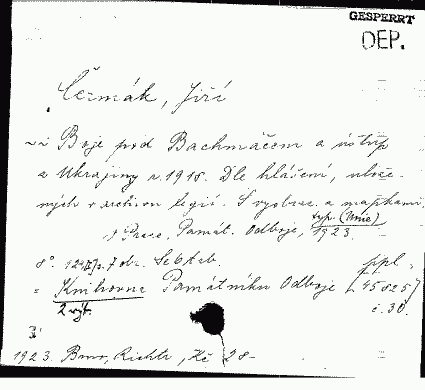 GESPERRT
DEP.
Čermák, Jiří
Boje pod Bachmáčem a ústup
z Ukrajiny r. 1918. Dle hlášení, ulože-
ných v archivu legií. S vyobraz. a mapkami
typ. (Unie)
Praze, Památ. Odboje, 1923.
8°. 7 obr.
ppl.
= Knihovna Památníku Odboje
[45825]
2 výt.
č. 30.
1923. Brno, Kč 28-